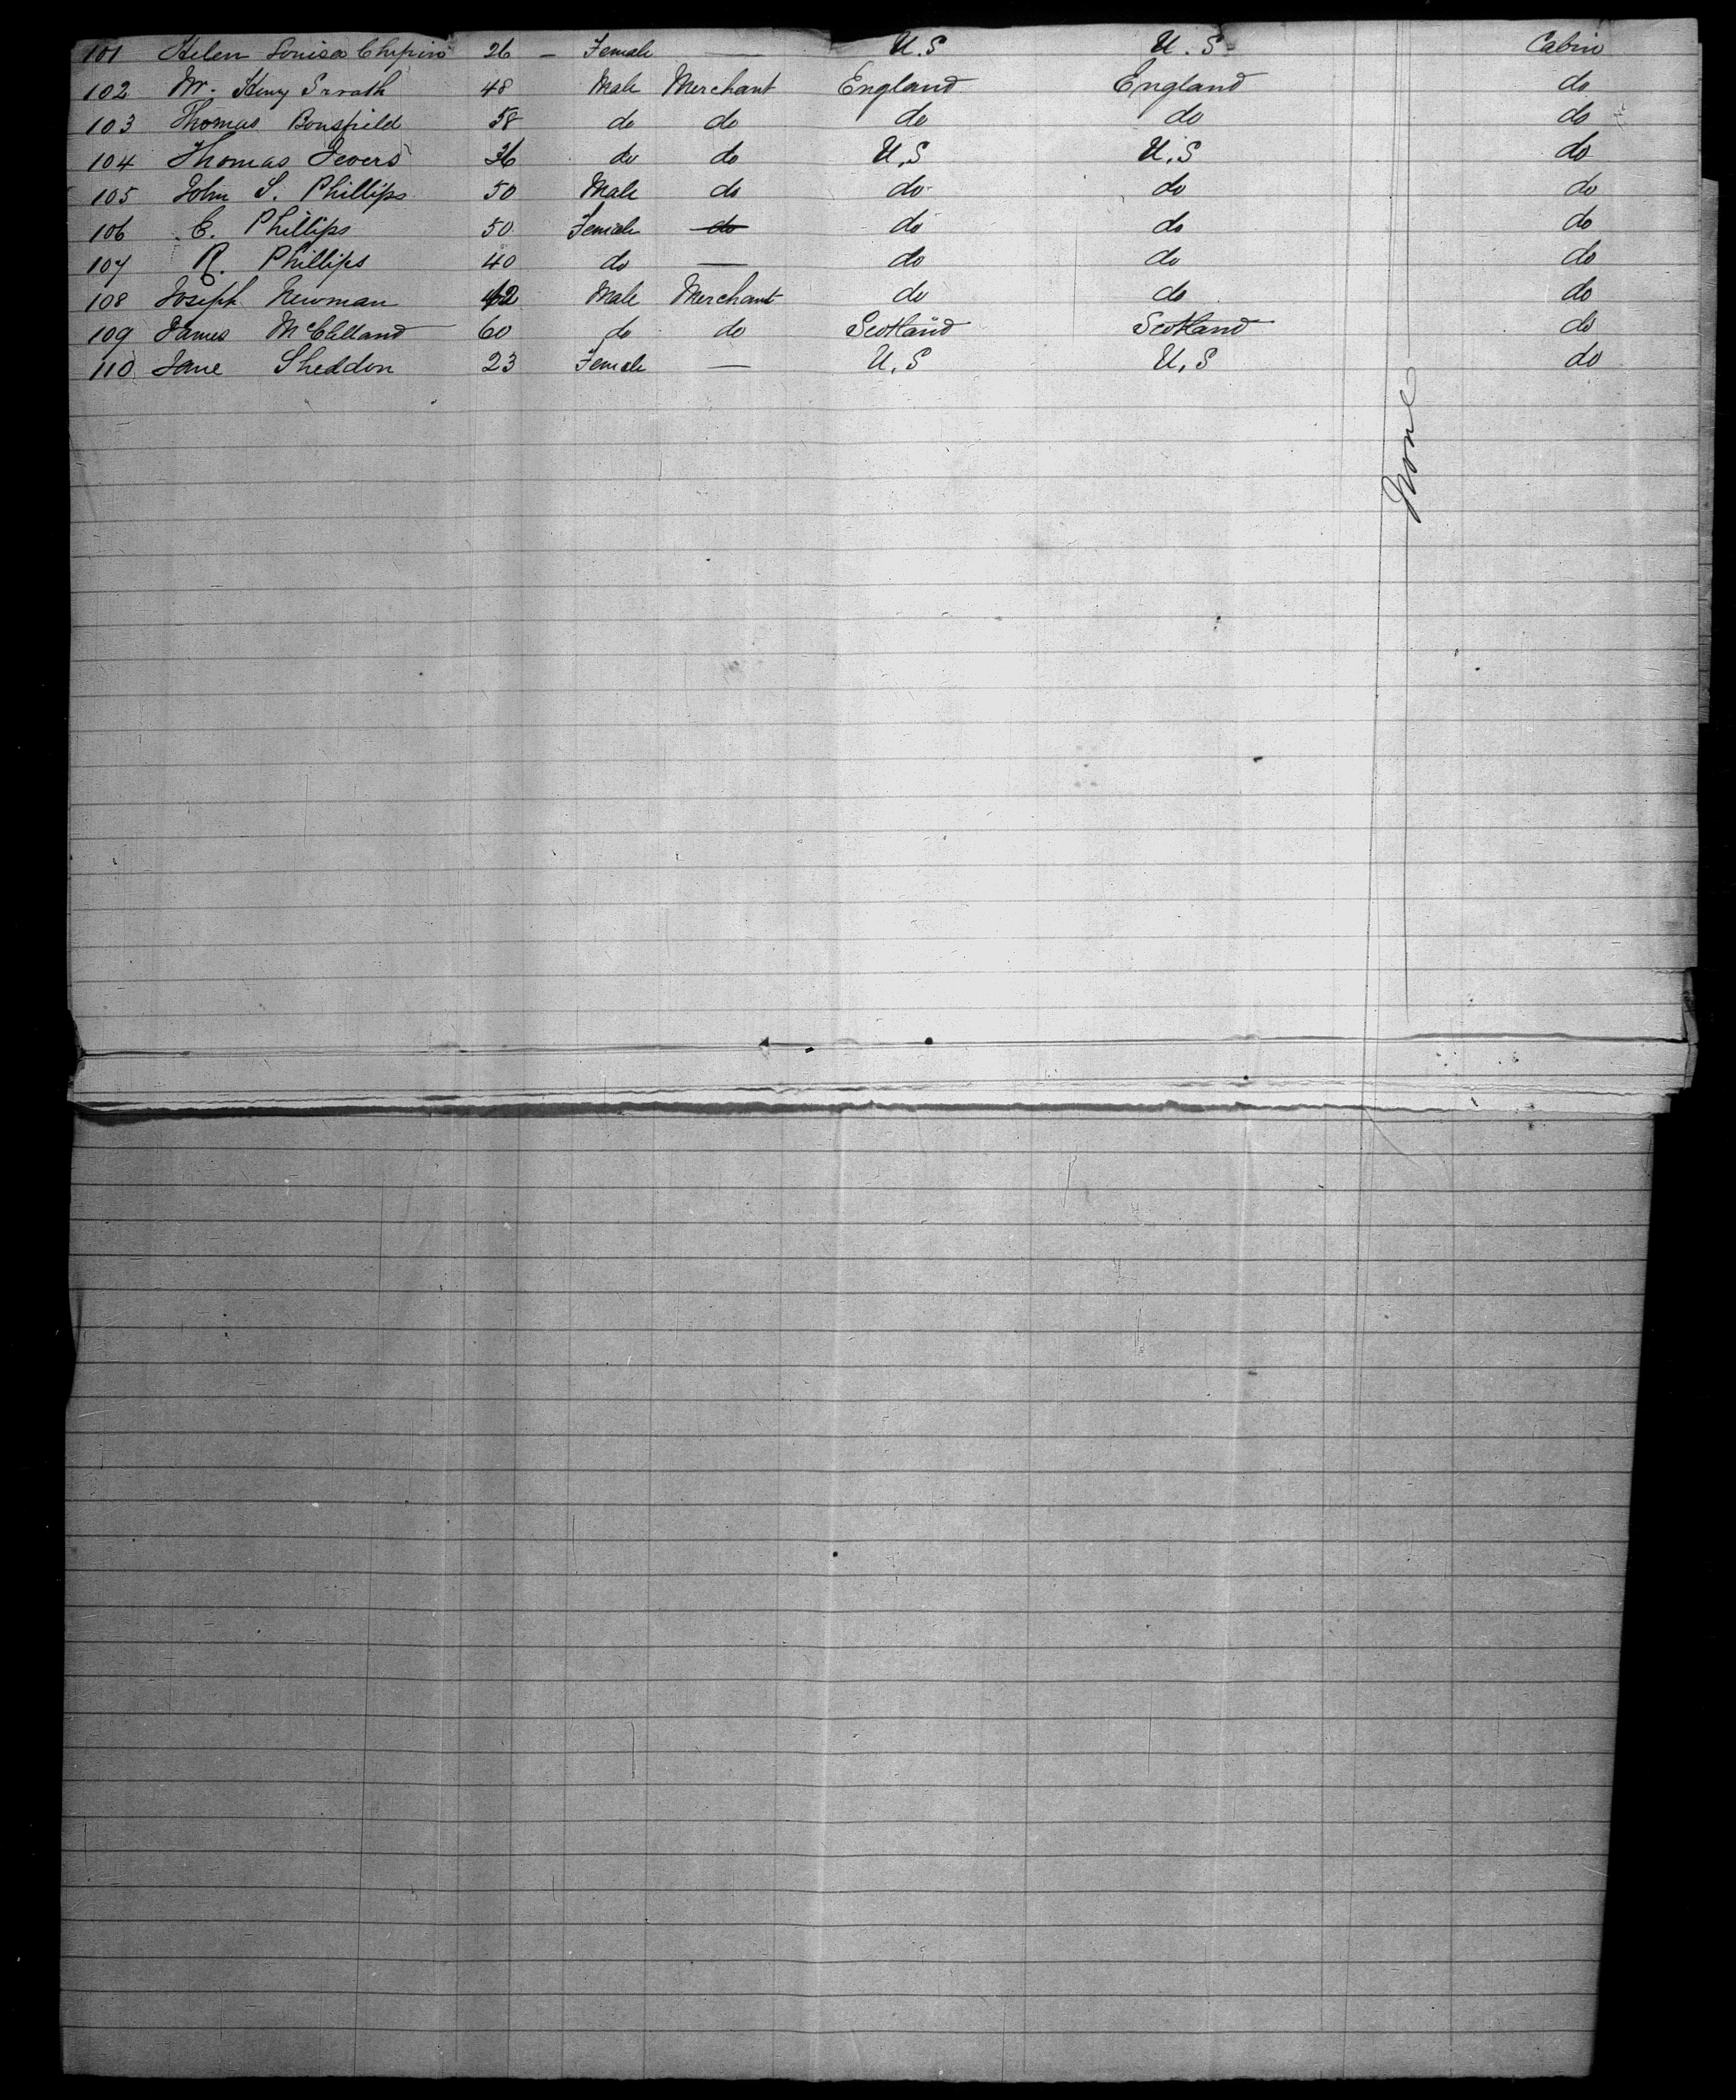 101 Helen Louisa Chapin 26 — Female — U.S U.S Cabin
102 Mr. Henry 48 Male Merchant England England do
103 Thomas Bousfield 58 do do do do do
104 Thomas Jevers 36 do do U.S U.S do
105 John S. Phillips 50 Male do do do do
106 E. Phillips 50 Female do do do do
107 R. Phillips 40 do — do do do
108 Joseph Newman 42 Male Merchant do do do
109 James McClelland 60 do do Scotland Scotland do
110 Jane Sheddon 23 Female — U.S U.S do
None